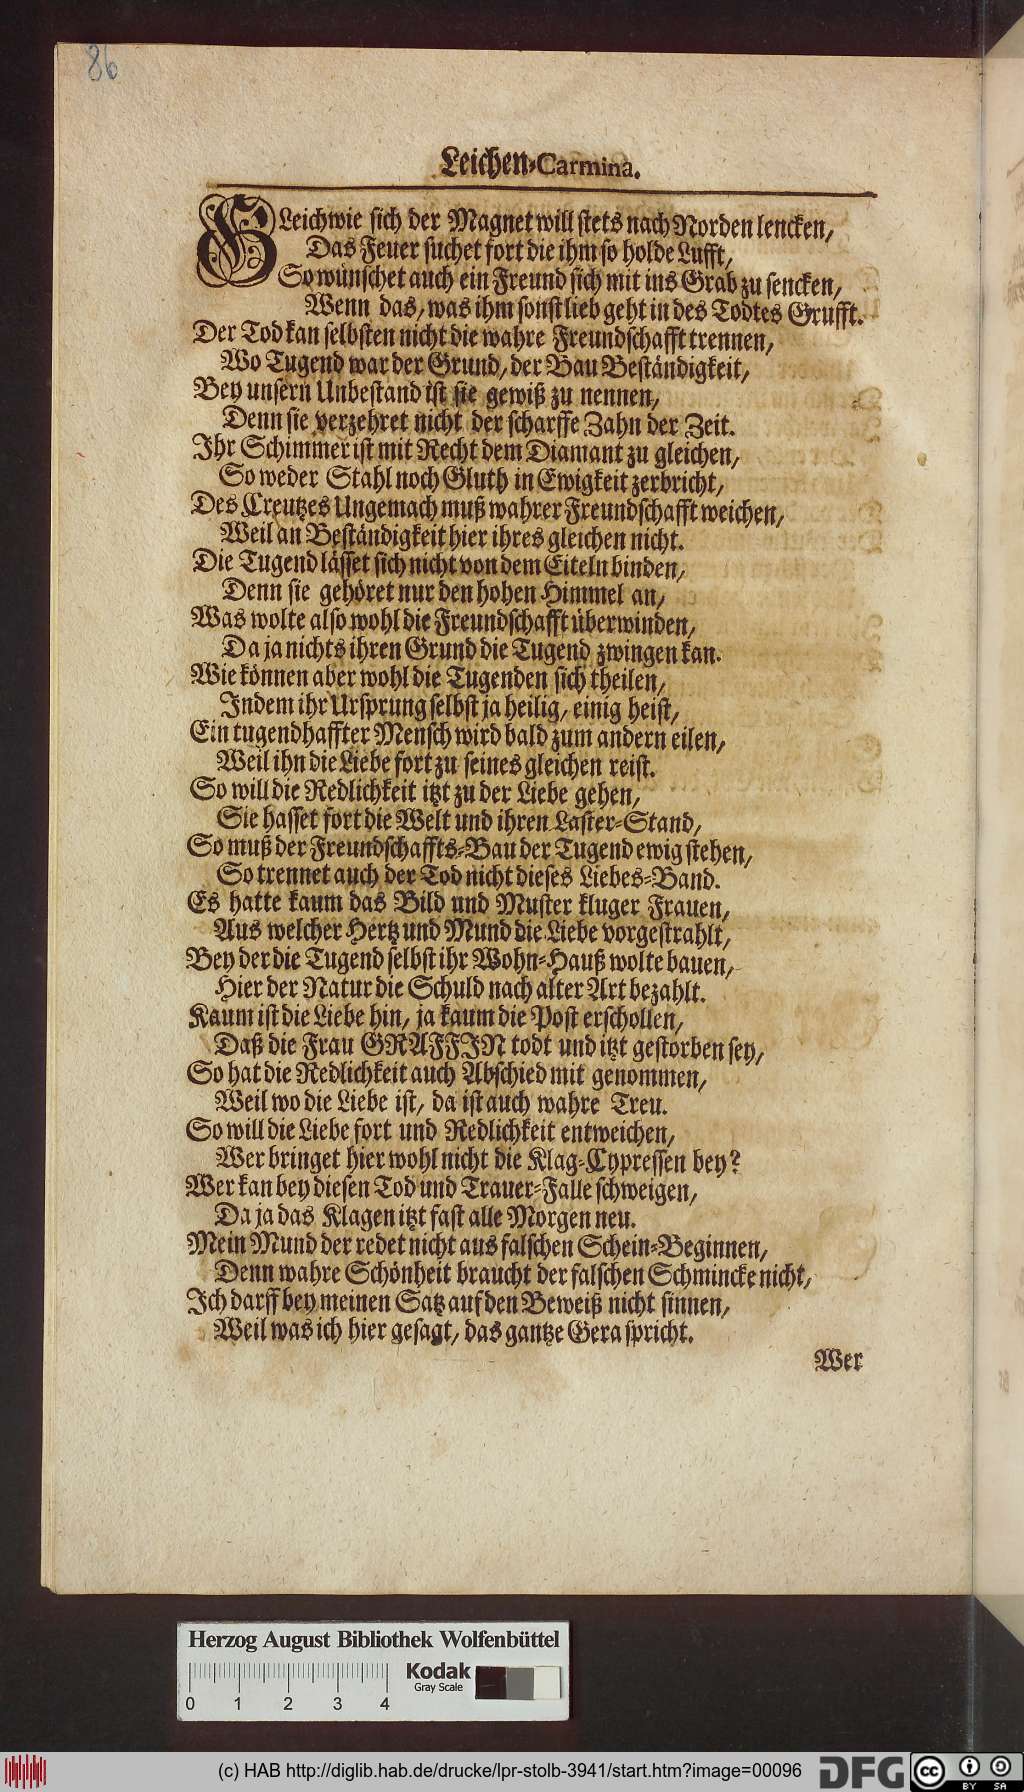 86
Leichen-Carmina.
GLeichwie sich der Magnet will stets nach Norden lencken,
Das Feuer suchet fort die ihm so holde Lufft,
So wünschet auch ein Freund sich mit ins Grab zu sencken,
Wenn das, was ihm sonst lieb geht in des Todtes Grufft.
Der Tod kan selbsten nicht die wahre Freundschafft trennen,
Wo Tugend war der Grund, der Bau Beständigkeit,
Bey unsern Unbestand ist sie gewiß zu nennen,
Denn sie verzehret nicht der scharffe Zahn der Zeit.
Ihr Schimmer ist mit Recht dem Diamant zu gleichen,
So weder Stahl noch Gluth in Ewigkeit zerbricht,
Des Creutzes Ungemach muß wahrer Freundschafft weichen,
Weil an Beständigkeit hier ihres gleichen nicht.
Die Tugend lässet sich nicht von dem Eiteln binden,
Denn sie gehöret nur den hohen Himmel an,
Was wolte also wohl die Freundschafft überwinden,
Da ja nichts ihren Grund die Tugend zwingen kan.
Wie können aber wohl die Tugenden sich theilen,
Indem ihr Ursprung selbst ja heilig, einig heist,
Ein tugendhaffter Mensch wird bald zum andern eilen,
Weil ihn die Liebe fort zu seines gleichen reist.
So will die Redlichkeit itzt zu der Liebe gehen,
Sie hasset fort die Welt und ihren Laster-Stand,
So muß der Freundschaffts-Bau der Tugend ewig stehen,
So trennet auch der Tod nicht dieses Liebes-Band.
Es hatte kaum das Bild und Muster kluger Frauen,
Aus welcher Hertz und Mund die Liebe vorgestrahlt,
Bey der die Tugend selbst ihr Wohn-Hauß wolte bauen,
Hier der Natur die Schuld nach alter Art bezahlt.
Kaum ist die Liebe hin, ja kaum die Post erschollen,
Daß die Frau GRAFFIN todt und itzt gestorben sey,
So hat die Redlichkeit auch Abschied mit genommen,
Weil wo die Liebe ist, da ist auch wahre Treu.
So will die Liebe fort und Redlichkeit entweichen,
Wer bringet hier wohl nicht die Klag-Cypressen bey?
Wer kan bey diesen Tod und Trauer-Falle schweigen,
Da ja das Klagen itzt fast alle Morgen neu.
Mein Mund der redet nicht aus falschen Schein-Beginnen,
Denn wahre Schönheit braucht der falschen Schmincke nicht,
Ich darff bey meinen Satz auf den Beweiß nicht sinnen,
Weil was ich hier gesagt, das gantze Gera spricht.
Wer
Herzog August Bibliothek Wolfenbüttel
Kodak
Gray Scale
0 1 2 3 4
(c) HAB http://diglib.hab.de/drucke/lpr-stolb-3941/start.htm?image=00096
DFG
cc BY SA